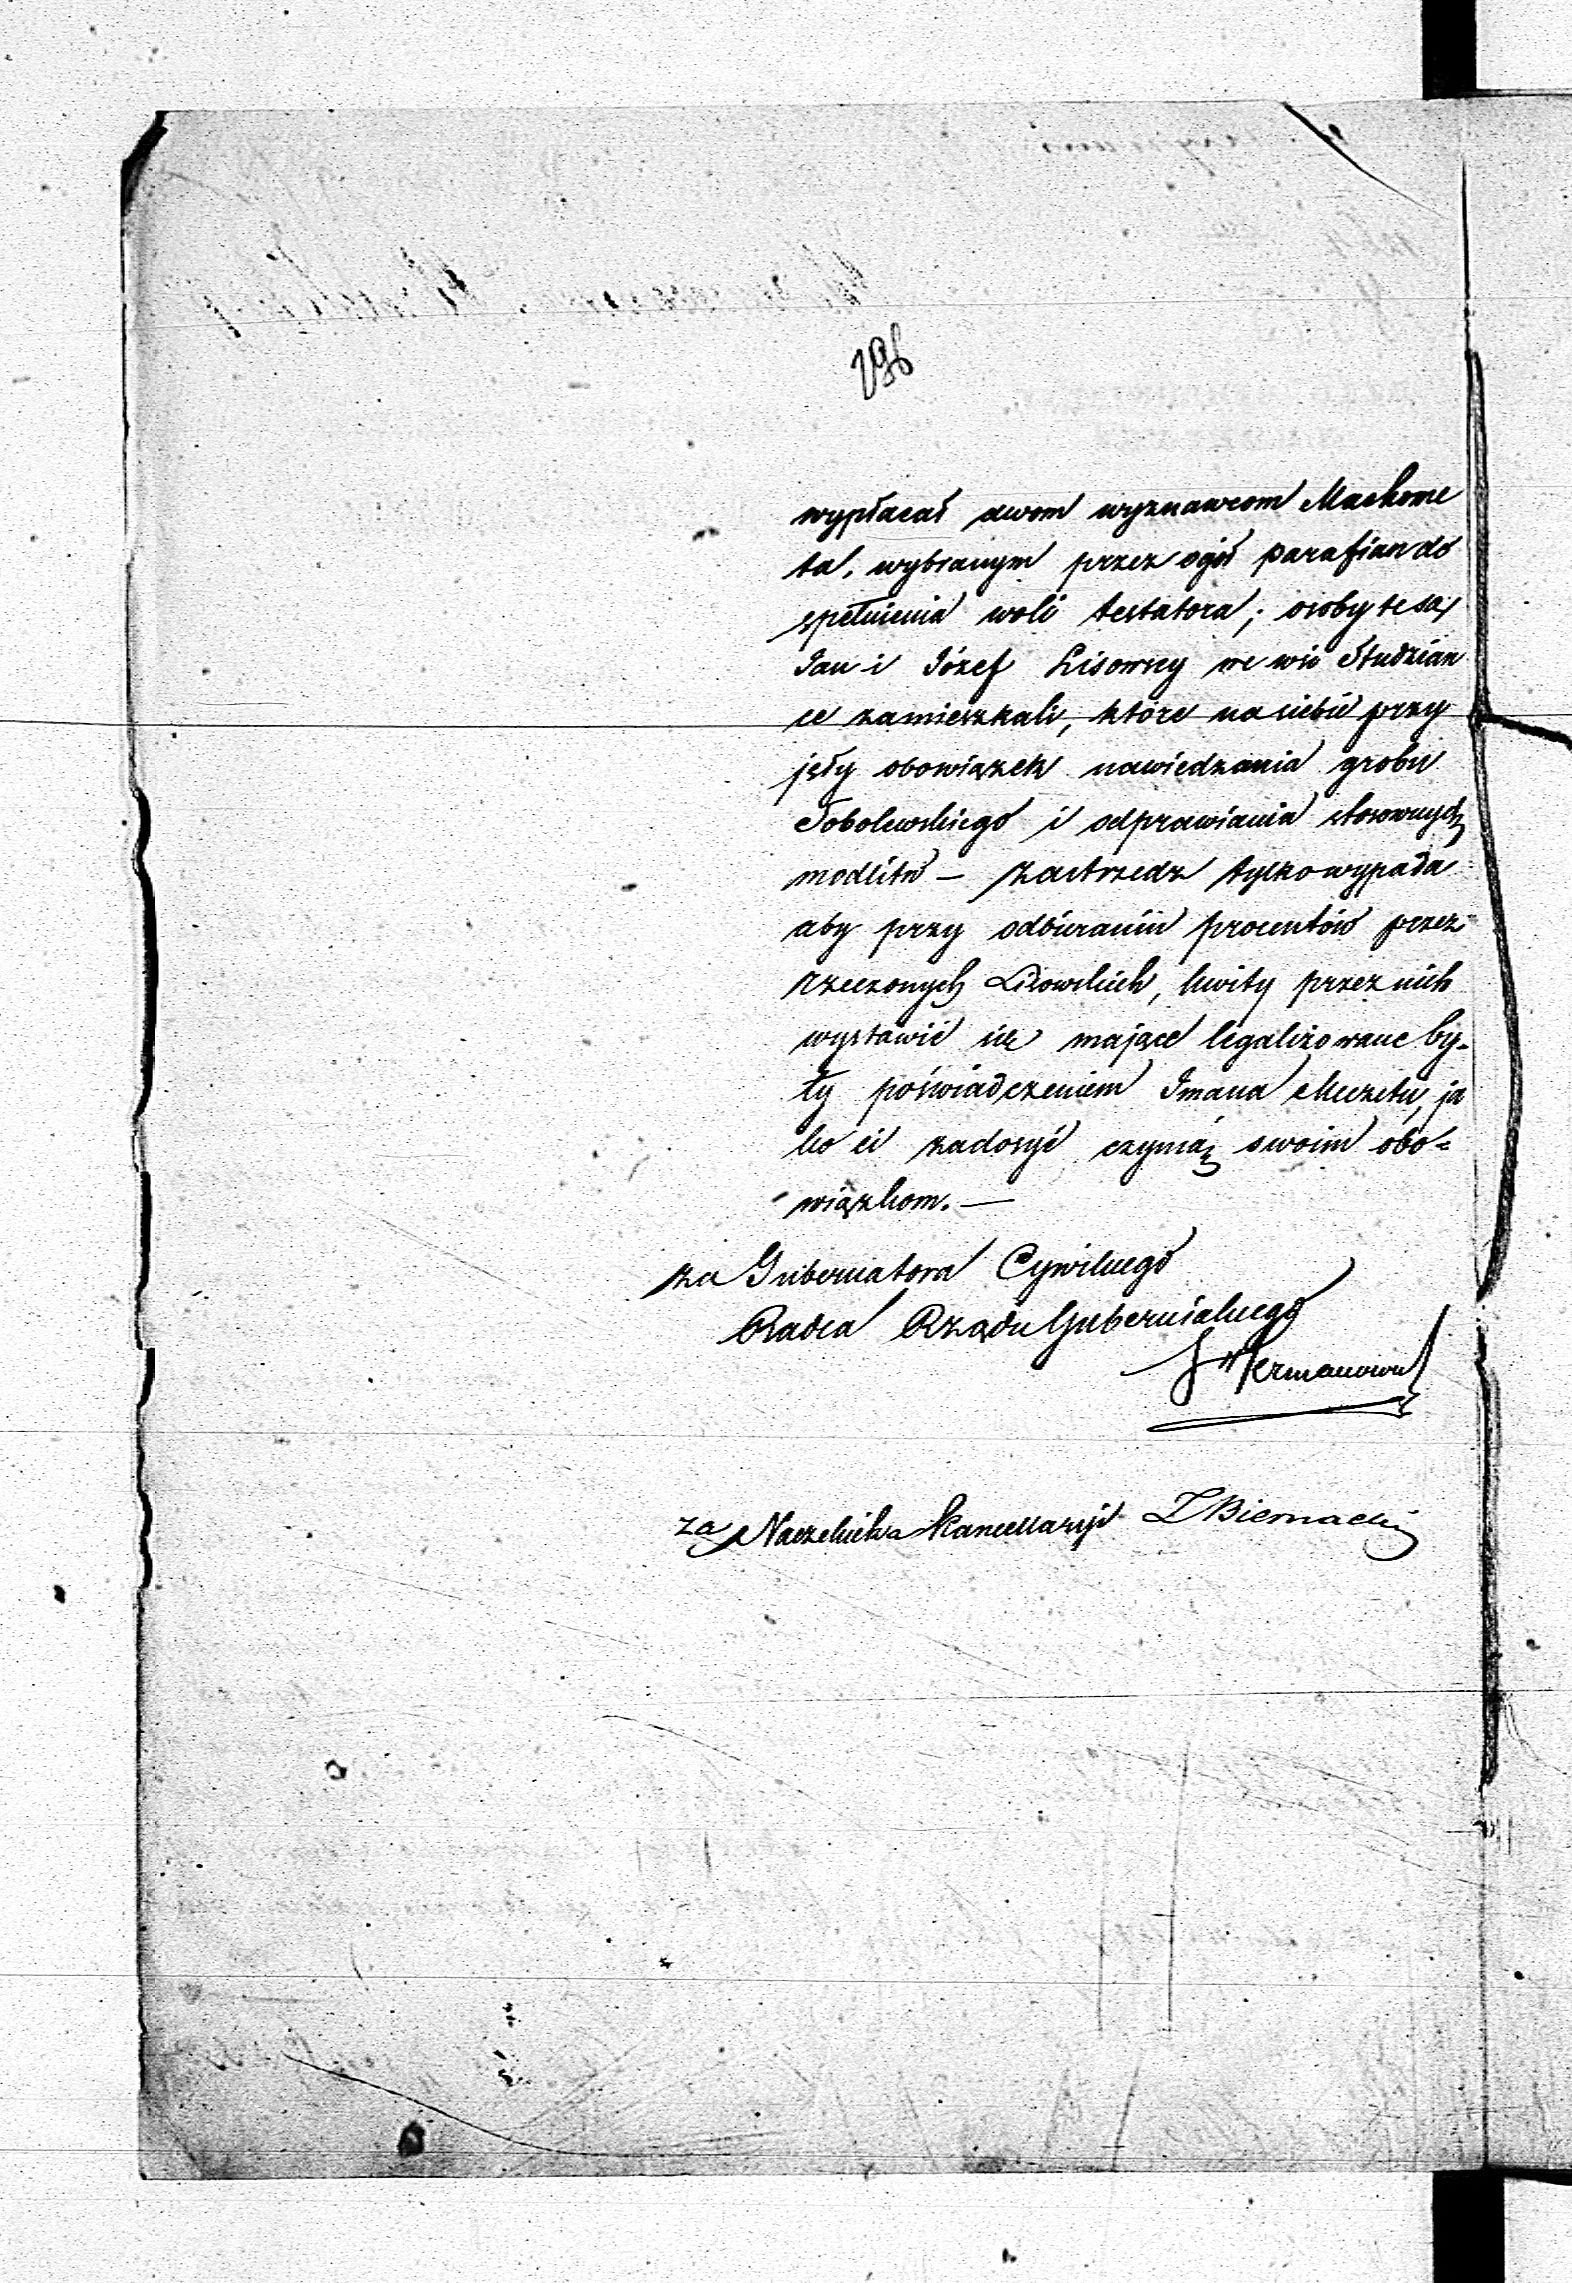 296
wypłacał dwom wyznawcom Machome
ta, wybranym przez ogół parafian do
spełnienia woli testatora; osoby te są
Jan i Józef Lisowscy we wsi Studzian
ce zamieszkali, które na siebie przy
jęły obowiązek nawiedzania grobu
Sobolewskiego i odprawiania stosownych
modlitw – Zastrzedz tylko wypada
aby przy odbieraniu procentów przez
rzeczonych Lisowskich, kwity przez nich
wystawić się mające legalizowane by-
ły poświadczeniem Imana Meczetu, ja
ko ci zadosyć czynią swoim obo=
wiązkom. —
za Gubernatora Cywilnego
Radca Rządu Gubernialnego
za Naczelnika Kancellaryi Biernacki